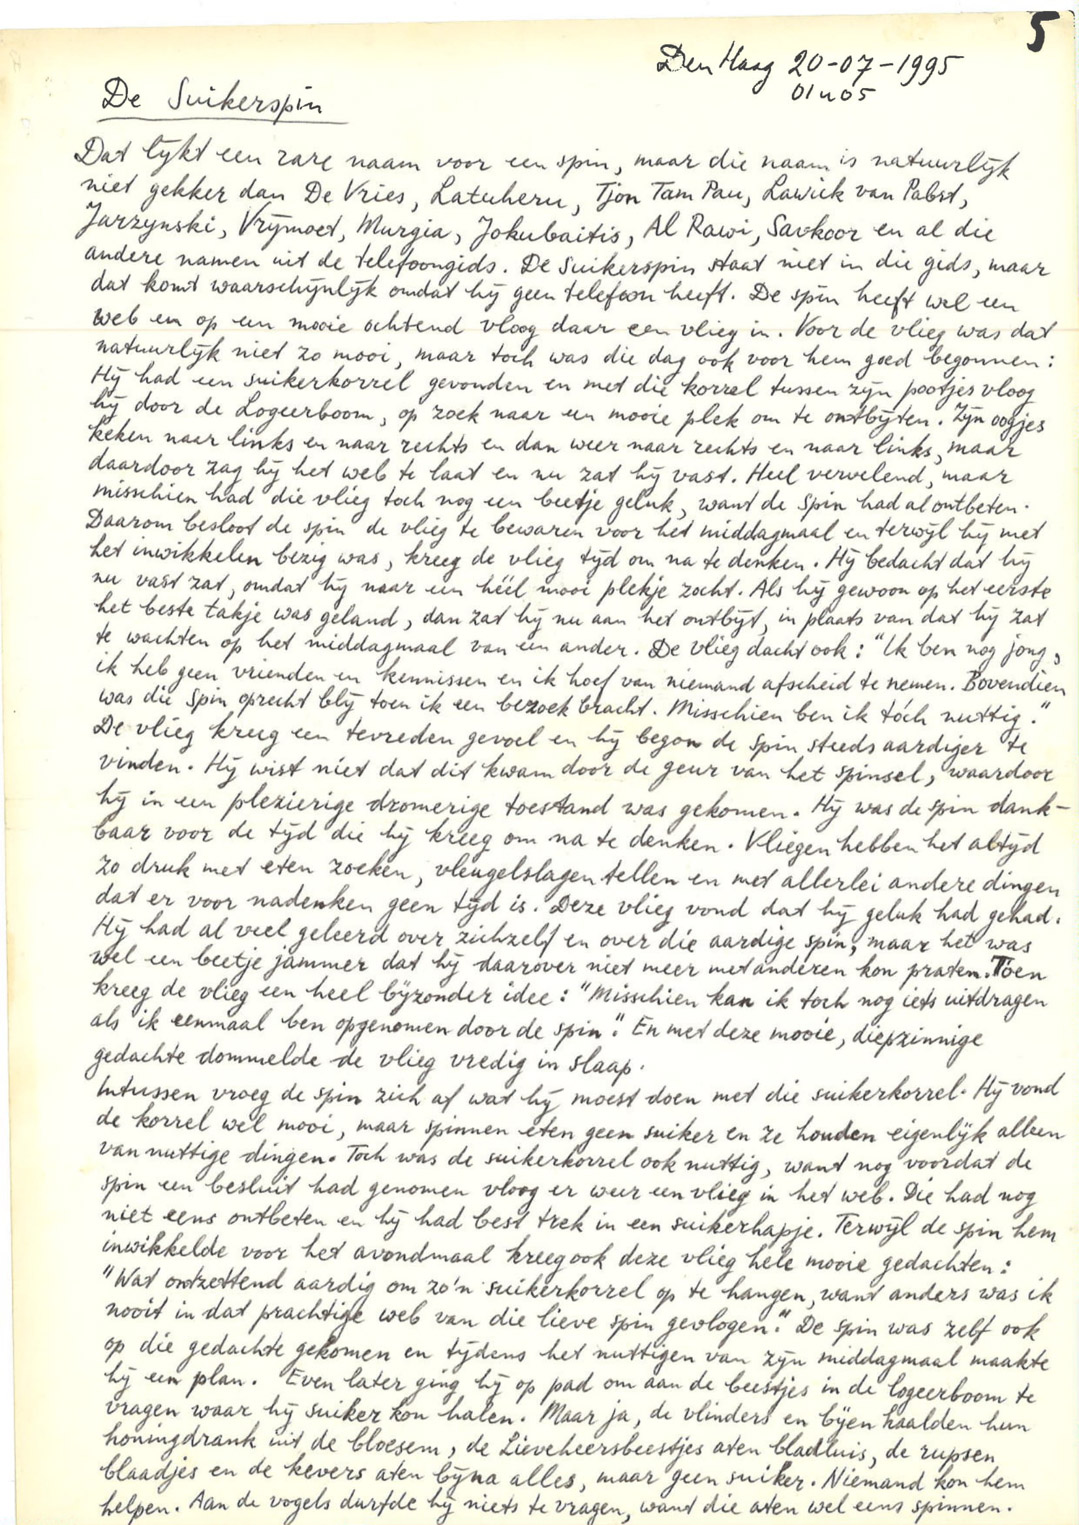 5
Den Haag 20-07-1995
01u05
De Suikerspin
Dat lijkt een rare naam voor een spin, maar die naam is natuurlijk
niet gekker dan De Vries, Latuheru, Tjon Tam Pau, Lawick van Pabst,
Jarzynski, Vrijmoet, Murgia, Jokubaitis, Al Rawi, Savkoor en al die
andere namen uit de telefoongids. De Suikerspin staat niet in die gids, maar
dat komt waarschijnlijk omdat hij geen telefoon heeft. De spin heeft wel een
web en op een mooie ochtend vloog daar een vlieg in. Voor de vlieg was dat
natuurlijk niet zo mooi, maar toch was die dag ook voor hem goed begonnen:
Hij had een suikerkorrel gevonden en met die korrel tussen zijn pootjes vloog
hij door de Logeerboom, op zoek naar een mooie plek om te ontbijten. Zijn oogjes
keken naar links en naar rechts en dan weer naar rechts en naar links, maar
daardoor zag hij het web te laat en nu zat hij vast. Heel vervelend, maar
misschien had die vlieg toch nog een beetje geluk, want de Spin had al ontbeten.
Daarom besloot de spin de vlieg te bewaren voor het middagmaal en terwijl hij met
het inwikkelen bezig was, kreeg de vlieg tijd om na te denken. Hij bedacht dat hij
nu vast zat, omdat hij naar een héél mooi plekje zocht. Als hij gewoon op het eerste
het beste takje was geland, dan zat hij nu aan het ontbijt, in plaats van dat hij zat
te wachten op het middagmaal van een ander. De vlieg dacht ook: "Ik ben nog jong,
ik heb geen vrienden en kennissen en ik hoef van niemand afscheid te nemen. Bovendien
was die Spin oprecht blij toen ik een bezoek bracht. Misschien ben ik tóch nuttig."
De vlieg kreeg een tevreden gevoel en hij begon de Spin steeds aardiger te
vinden. Hij wist niet dat dit kwam door de geur van het spinsel, waardoor
hij in een plezierige dromerige toestand was gekomen. Hij was de spin dank-
baar voor de tijd die hij kreeg om na te denken. Vliegen hebben het altijd
zo druk met eten zoeken, vleugelslagen tellen en met allerlei andere dingen
dat er voor nadenken geen tijd is. Deze vlieg vond dat hij geluk had gehad.
Hij had al veel geleerd over zichzelf en over die aardige spin, maar het was
wel een beetje jammer dat hij daarover niet meer met anderen kon praten. Toen
kreeg de vlieg een heel bijzonder idee: "Misschien kan ik toch nog iets uitdragen
als ik eenmaal ben opgenomen door de spin". En met deze mooie, diepzinnige
gedachte dommelde de vlieg vredig in slaap.
Intussen vroeg de spin zich af wat hij moest doen met die suikerkorrel. Hij vond
de korrel wel mooi, maar spinnen eten geen suiker en ze houden eigenlijk alleen
van nuttige dingen. Toch was de suikerkorrel ook nuttig, want nog voordat de
spin een besluit had genomen vloog er weer een vlieg in het web. Die had nog
niet eens ontbeten en hij had best trek in een suikerhapje. Terwijl de spin hem
inwikkelde voor het avondmaal kreeg ook deze vlieg hele mooie gedachten:
"Wat ontzettend aardig om zo'n suikerkorrel op te hangen, want anders was ik
nooit in dat prachtige web van die lieve spin gevlogen." De spin was zelf ook
op die gedachte gekomen en tijdens het nuttigen van zijn middagmaal maakte
hij een plan. Even later ging hij op pad om aan de beestjes in de logeerboom te
vragen waar hij suiker kon halen. Maar ja, de vlinders en bijen haalden hun
honingdrank uit de bloesem, de Lieveheersbeestjes aten bladluis, de rupsen
blaadjes en de kevers aten bijna alles, maar geen suiker. Niemand kon hem
helpen. Aan de vogels durfde hij niets te vragen, want die aten wel eens spinnen.